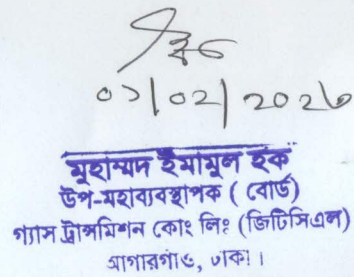 ০১/০২/২০২৬
মুহাম্মদ ইমামুল হক
উপ-মহাব্যবস্থাপক ( বোর্ড)
গ্যাস ট্রান্সমিশন কোং লিঃ (জিটিসিএল)
আগারগাঁও, ঢাকা।